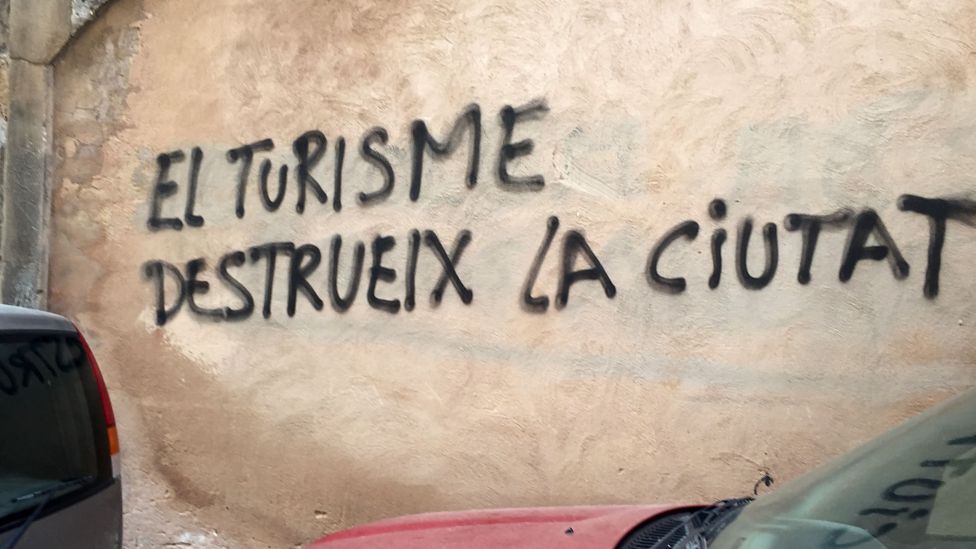 EL TURiSME
DESTRUEiX LA CiUTAT